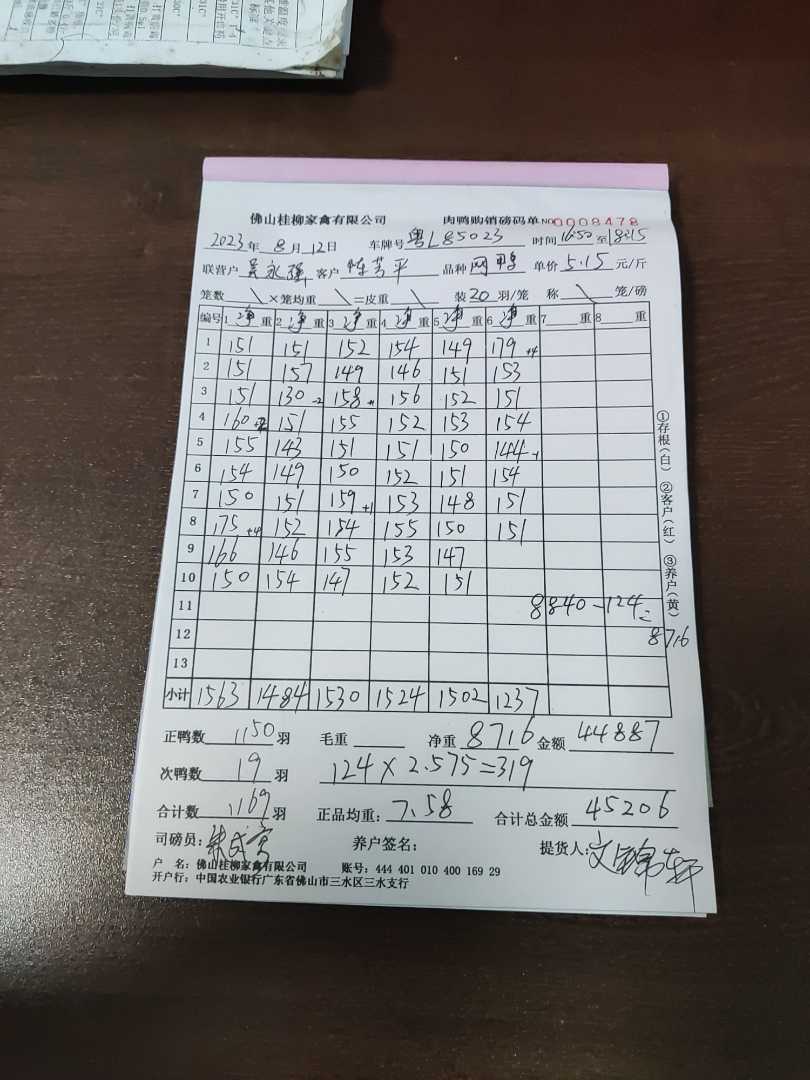 佛山桂柳家禽有限公司 肉鸭购销磅码单 NO 0008478
2023年 8月 12日 车牌号 粤L85023 时间 16:50 至 18:15
联营户 吴永强 客户 陈芳平 品种 网鸭 单价 5.15 元/斤
笼数 \ ×笼均重 \ =皮重 \ 装 20 羽/笼 称 \ 笼/磅
编号 1 净 重 2 净 重 3 净 重 4 净 重 5 净 重 6 净 重 7 重 8 重
1 151 151 152 154 149 179 +4
2 151 157 149 146 151 153
3 151 130 -2 158 156 152 151
4 160 151 155 152 153 154
5 155 143 151 151 150 144 -1
6 154 149 150 152 151 154
7 150 151 159 +1 153 148 151
8 175 +4 152 154 155 150 151
9 166 146 155 153 147
10 150 154 147 152 151
11 8840-124=
12 8716
13
小计 1563 1484 1530 1524 1502 1237
正鸭数 1150 羽 毛重 净重 8716 金额 44887
次鸭数 19 羽 124×2.575=319
合计数 1169 羽 正品均重: 7.58 合计总金额 45206
司磅员: 养户签名: 提货人:
户 名: 佛山桂柳家禽有限公司 账号: 444 401 010 400 169 29
开户行: 中国农业银行广东省佛山市三水区三水支行
①存根(白) ②客户(红) ③养户(黄)